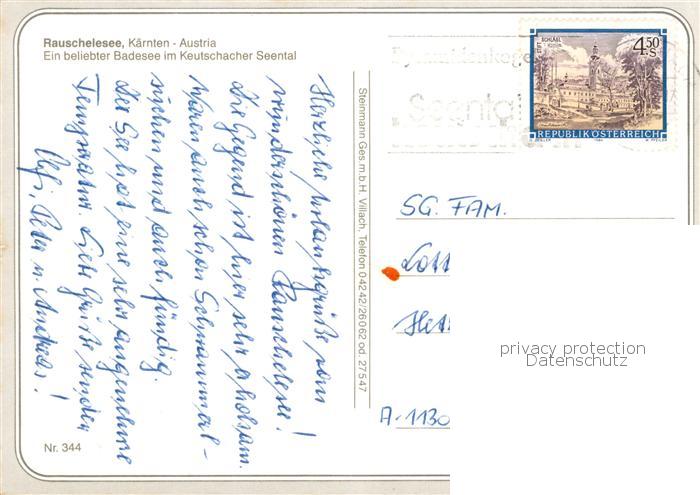 Rauschelesee, Kärnten - Austria
Ein beliebter Badesee im Keutschacher Seental
Herzliche Urlaubsgrüße vom
wunderschönen Rauschelesee!
Die Gegend ist hier sehr erholsam.
Waren auch schon Schwammerl-
suchen und auch fündig.
Der See hat eine sehr angenehme
Temperatur. Liebe Grüße senden
Peter u. Andreas!
Nr. 344
Steinmann Ges.m.b.H. Villach, Telefon 0 42 42/26 0 62 od. 275 47
Seental
STIFT SCHLÄGL
4.50 S
REPUBLIK ÖSTERREICH
SG. FAM.
Lott
A-1130
privacy protection
Datenschutz